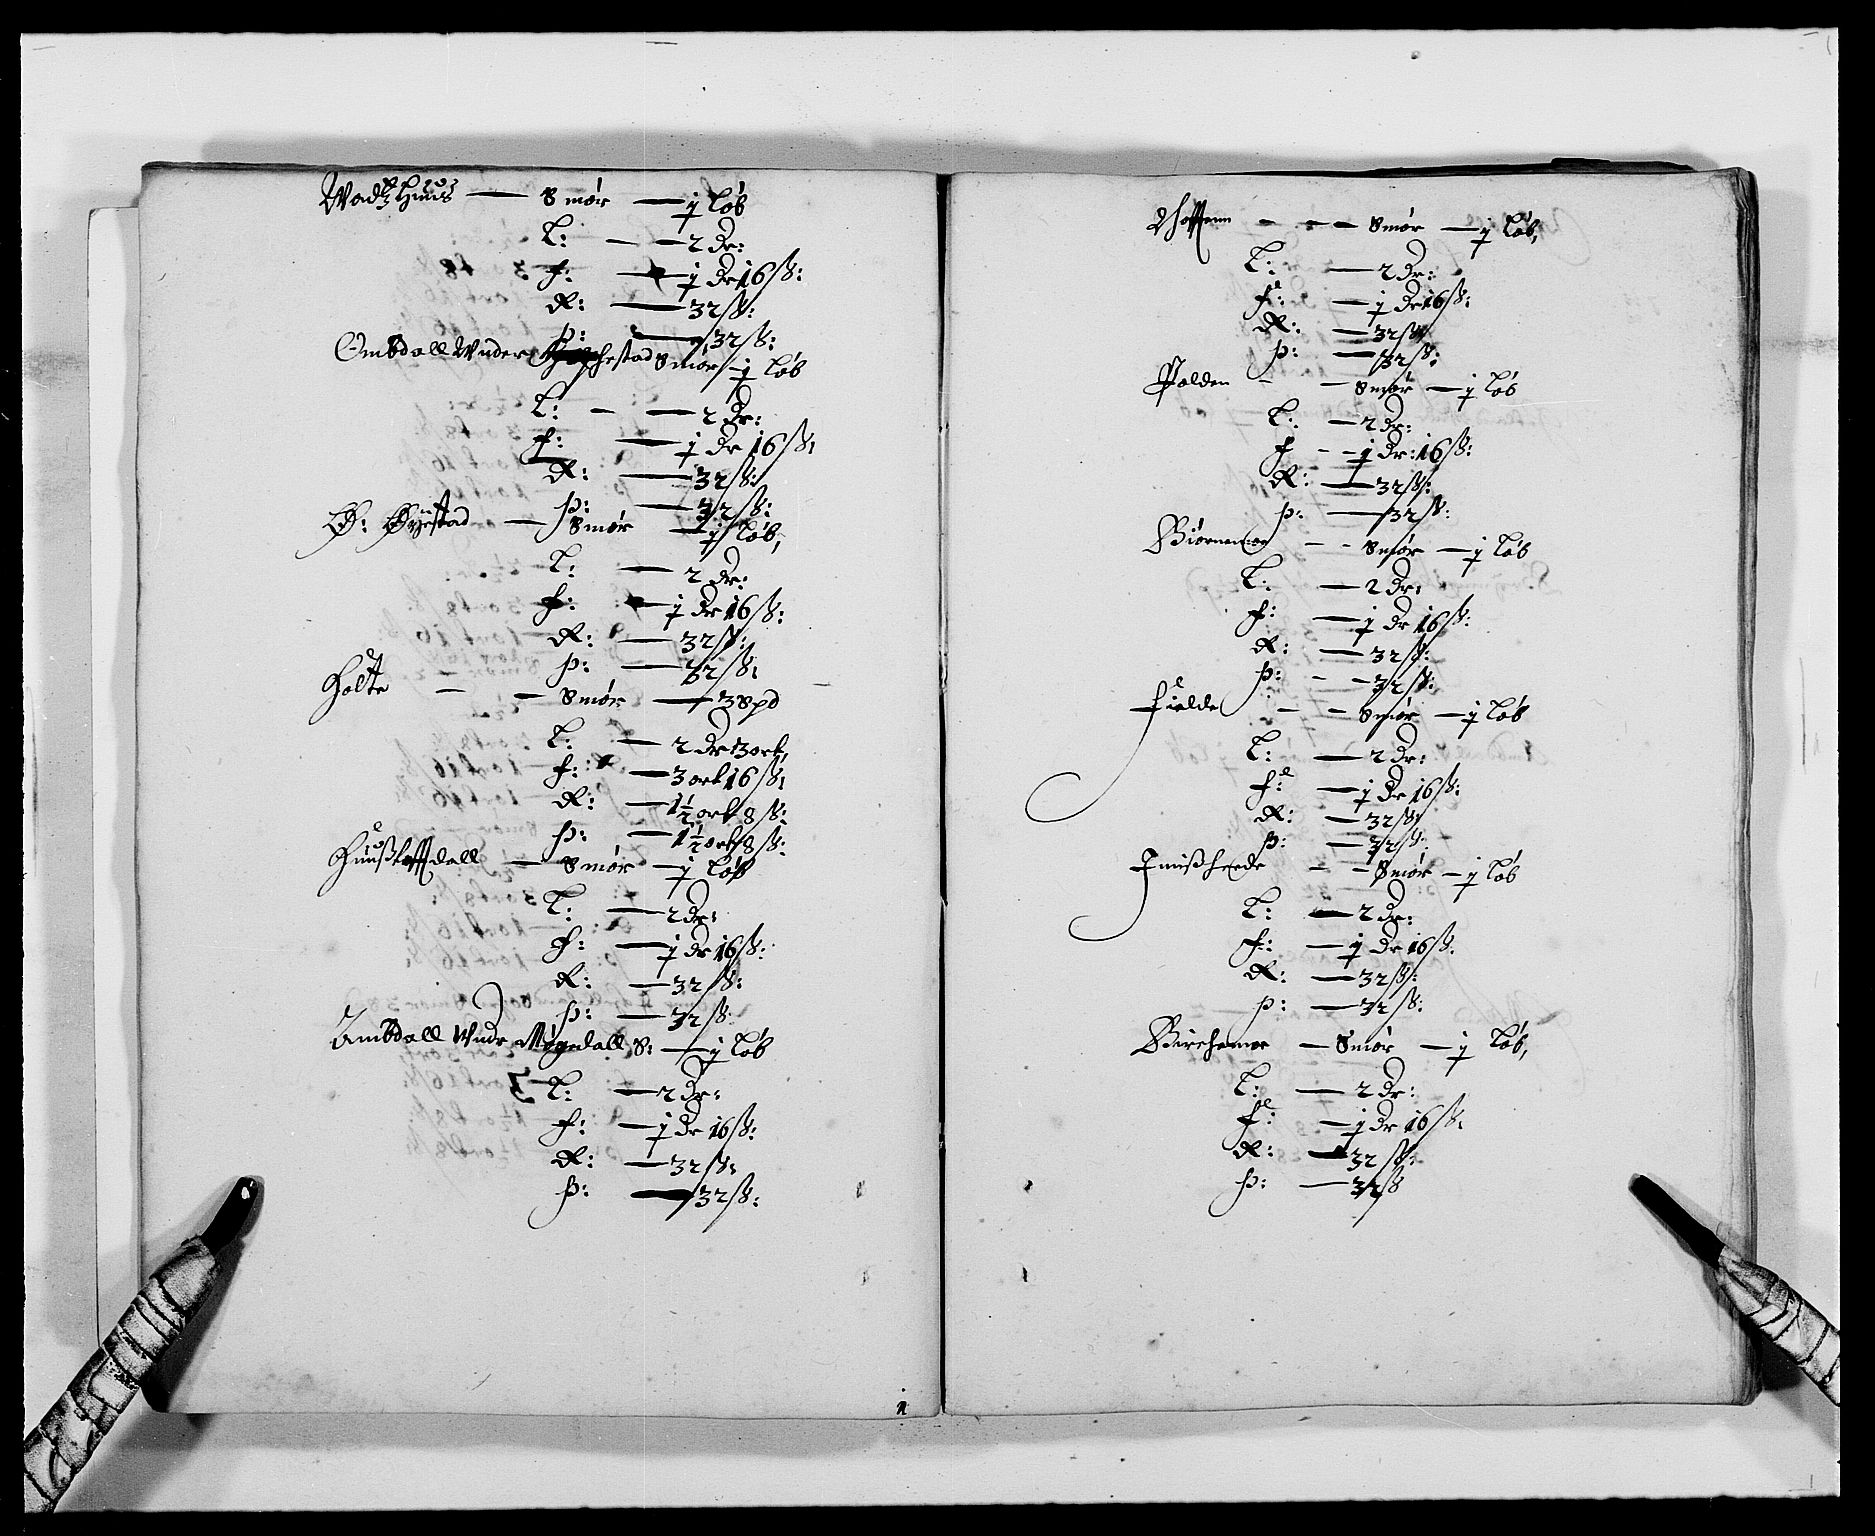 Wadtzhuus — Smór — j Lób
L: — 2 Dr:
f: — j Dr 16 ß:
R: — 32 ß:
þ: — 32 ß:
Ombdall Wnder Smór — j Lób
L: — 2 Dr:
f: — j Dr 16 ß:
R: — 32 ß:
þ: — 32 ß:
Ø: Øÿestad — Smór — j Lób,
L: — 2 Dr:
f: — j Dr 16 ß:
R: — 32 ß:
þ: — 32 ß:
Holte — Smór — 3 Spd
L: — 2 Dr 3 ort,
f: — 3 ort 16 ß:
R: — 1½ ort 8 ß:
þ: — 1½ ort 8 ß:
dall — Smór — j Lób
L: — 2 Dr:
f: — j Dr 16 ß:
R: — 32 ß:
þ: — 32 ß:
Ambdall Wndr Mögedall S: — j Lób
L: — 2 Dr:
f: — j Dr 16 ß:
R: — 32 ß:
þ: — 32 ß:
— Smór — j Lób,
L: — 2 Dr:
f: — j Dr 16 ß:
R: — 32 ß:
þ: — 32 ß:
Polden — Smór — j Lób
L: — 2 Dr:
f — j Dr: 16 ß:
R: — 32 ß:
þ: — 32 ß:
Biørnemoe — Smór — j Lób
L: — 2 Dr:
f: — j Dr 16 ß:
R: — 32 ß:
þ: — 32 ß:
Fielde — Smór — j Lób
L: — 2 Dr:
f: — j Dr 16 ß:
R: — 32 ß:
þ: — 32 ß:
Jmißheede — Smór — j Lób
L: — 2 Dr:
f: — j Dr 16 ß:
R: — 32 ß:
þ: — 32 ß:
Birchemoe — Smór — j Lób,
L: — 2 Dr:
f: — j Dr 16 ß:
R: — 32 ß:
þ: — 32 ß